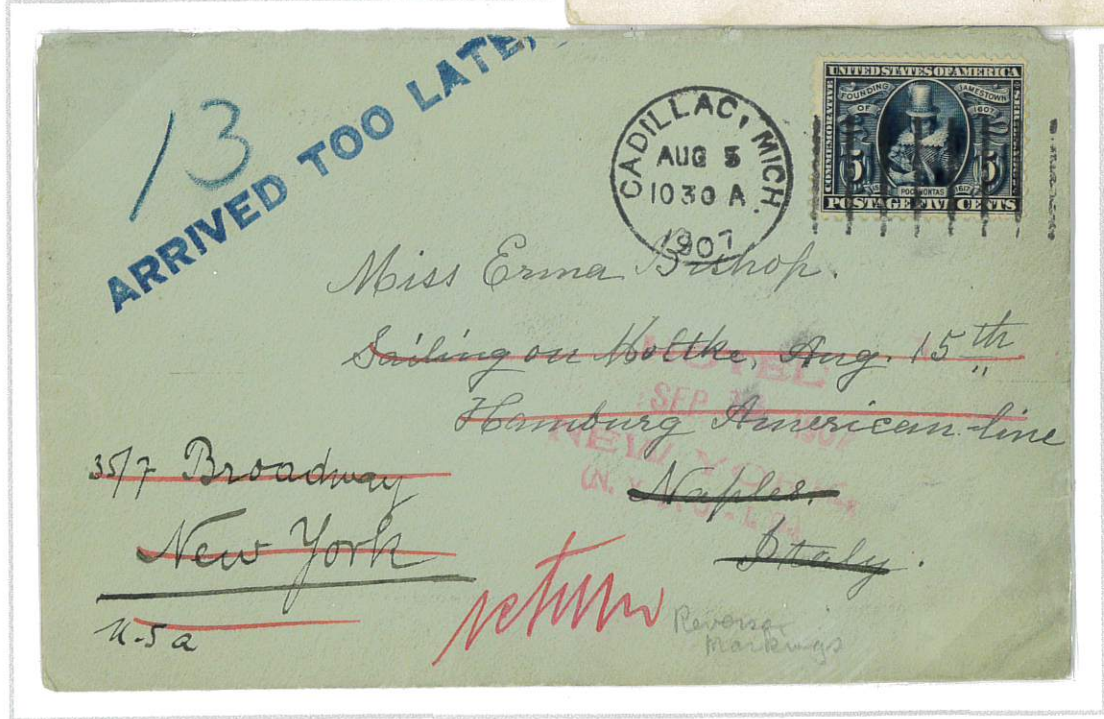 13
ARRIVED TOO LATE.
CADILLAC, MICH.
AUG 5
10 30 A
1907
UNITED STATES OF AMERICA
COMMEMORATIVE
FOUNDING OF JAMESTOWN 1607
5 5
POCAHONTAS 1612
POSTAGE FIVE CENTS
Miss Erma Bishop.
Sailing on Moltke, Aug. 15th
Hamburg American line
Naples.
Italy.
35/7 Broadway
New York
U.S a
HOTEL
SEP 1907
NEW YORK
(N. Y.
return
Reverse
Markings